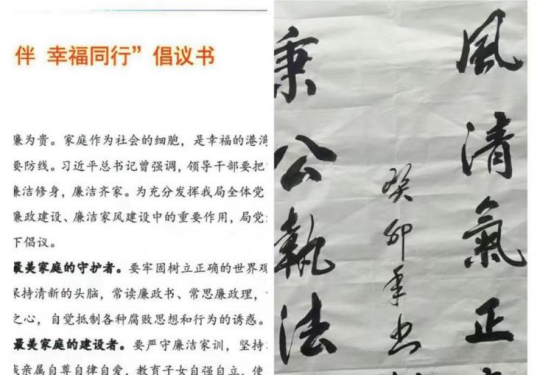 伴 幸福同行”倡议书
廉为贵。家庭作为社会的细胞，是幸福的港湾
要防线。习近平总书记曾强调，领导干部要把
廉洁修身，廉洁齐家。为充分发挥我局全体党
廉政建设、廉洁家风建设中的重要作用，局党
下倡议。
最美家庭的守护者。要牢固树立正确的世界观
保持清新的头脑，常读廉政书、常思廉政理，
之心，自觉抵制各种腐败思想和行为的诱惑。
最美家庭的建设者。要严守廉洁家训，坚持
亲属自尊自律自爱，教育子女自强自立，使
風清氣正
秉公執法
癸卯年